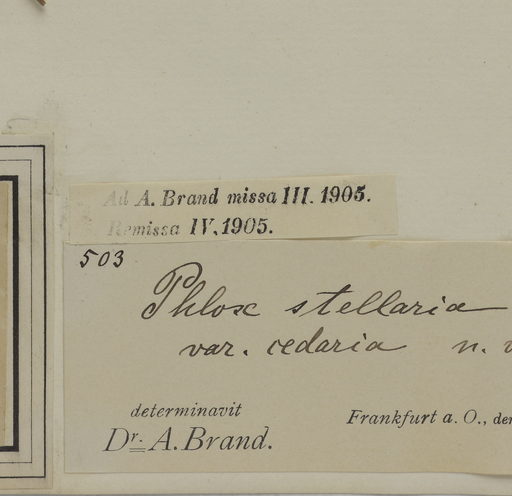 Ad A. Brand missa III. 1905.
Remissa IV, 1905.
503
Phlox stellaria
var. cedaria n.
determinavit
Dr. A. Brand.
Frankfurt a. O., den